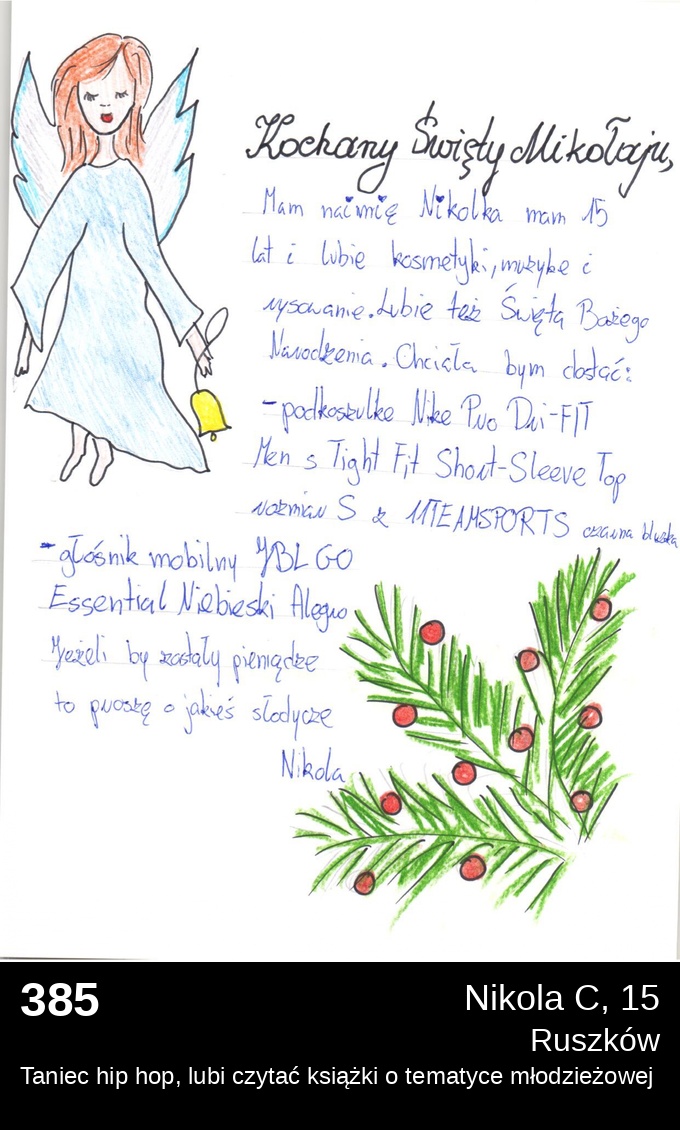 Kochany Święty Mikołaju,
Mam naimię Nikolka mam 15
lat i lubie kosmetyki, muzyke i
rysowanie. Lubie też Święta Bożego
Narodzenia. Chciała bym dostać:
- podkoszulke Nike Pro Dri-FIT
Men s Tight Fit Short-Sleeve Top
rozmiar S z 11TEAMSPORTS czarna bluska
- głośnik mobilny JBL GO
Essential Niebieski Alegro
Jeżeli by zostały pieniądze
to proszę o jakieś słodycze
Nikola
385
Nikola C, 15
Ruszków
Taniec hip hop, lubi czytać książki o tematyce młodzieżowej